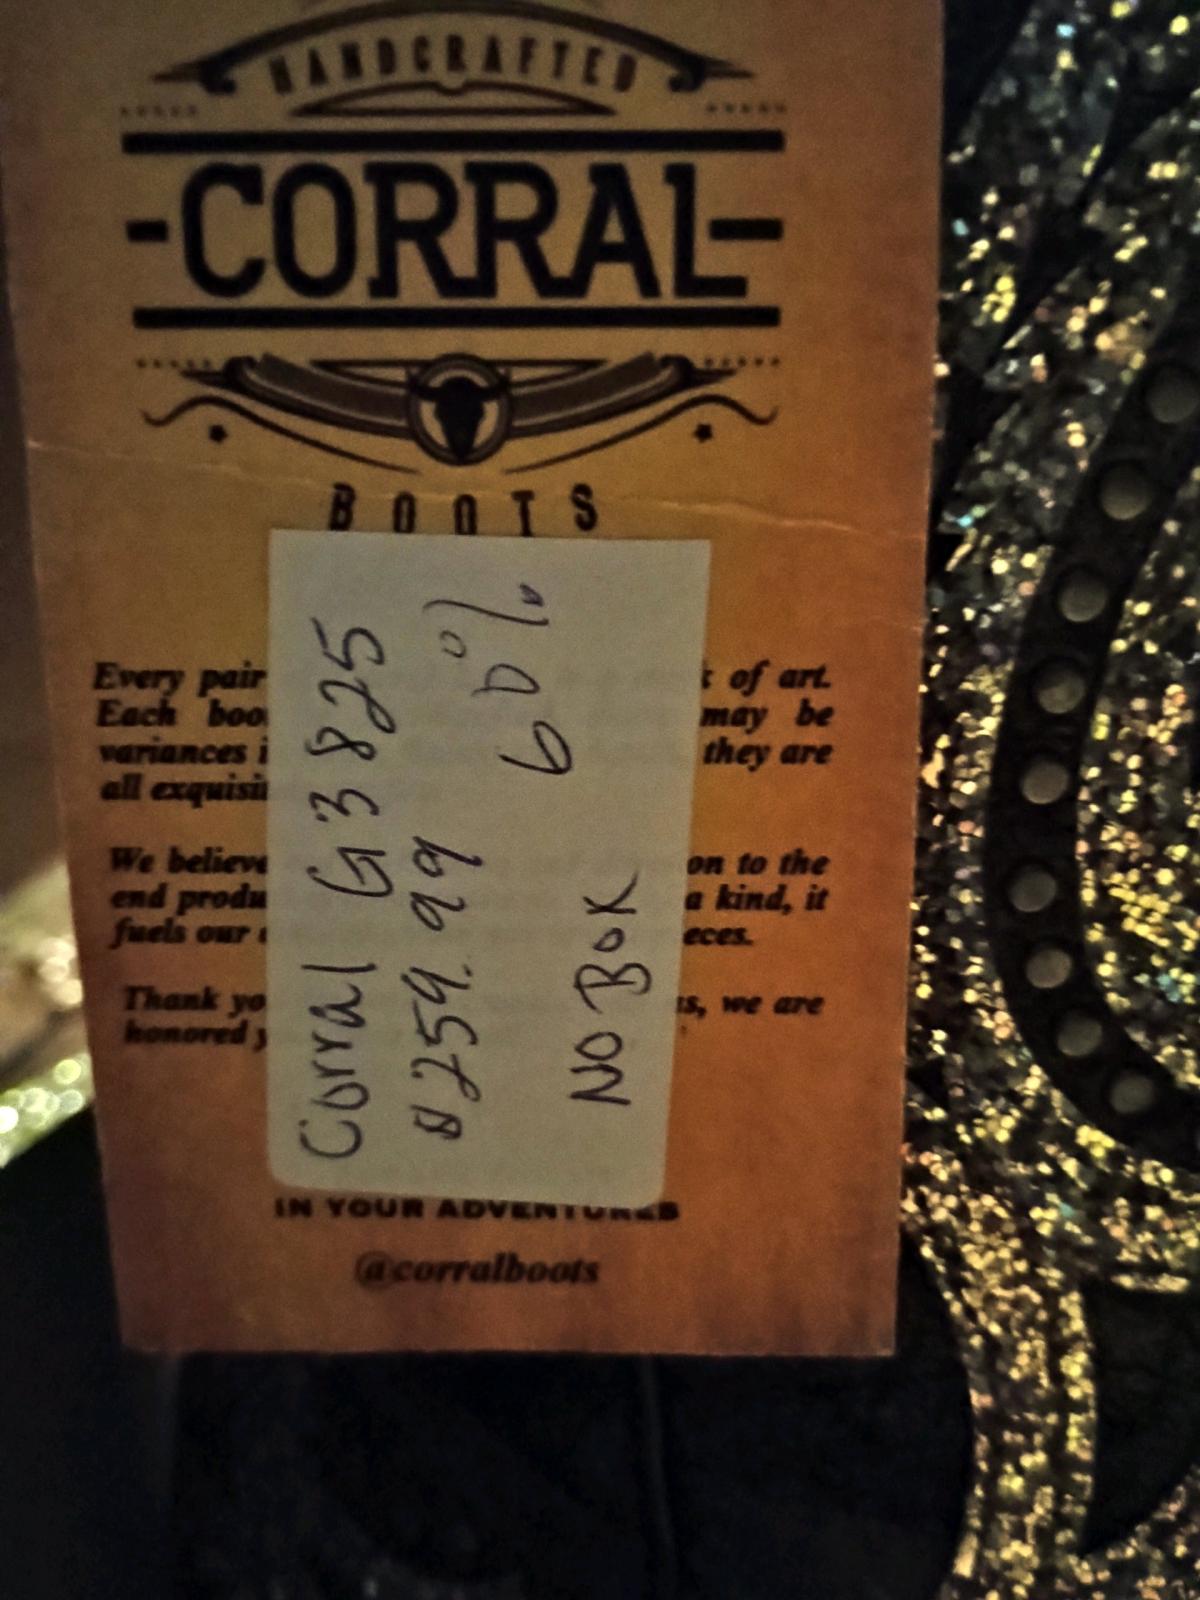 HANDCRAFTED
CORRAL
BOOTS
Every pair of art.
Each may be
variances they are
all
We believe on to the
end a kind, it
fuels our
Thank we are
honored
IN YOUR ADVENTURES
@corralboots
Corral G3825
$259.99 60%
NO BOX